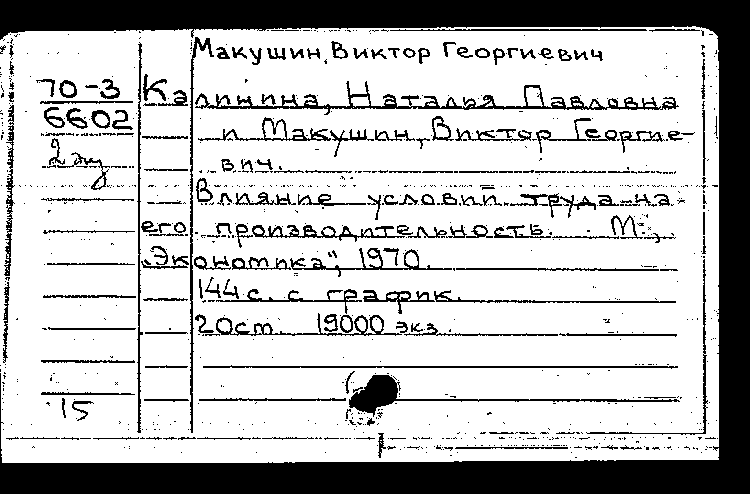 Макушин, Виктор Георгиевич
70-3
6602
2 экз
Калинина, Наталья Павловна
и Макушин, Виктор Георгие-
вич.
Влияние условий труда на
его производительность. М.,
„Экономика", 1970.
144 с. с график.
20 см. 19000 экз.
15